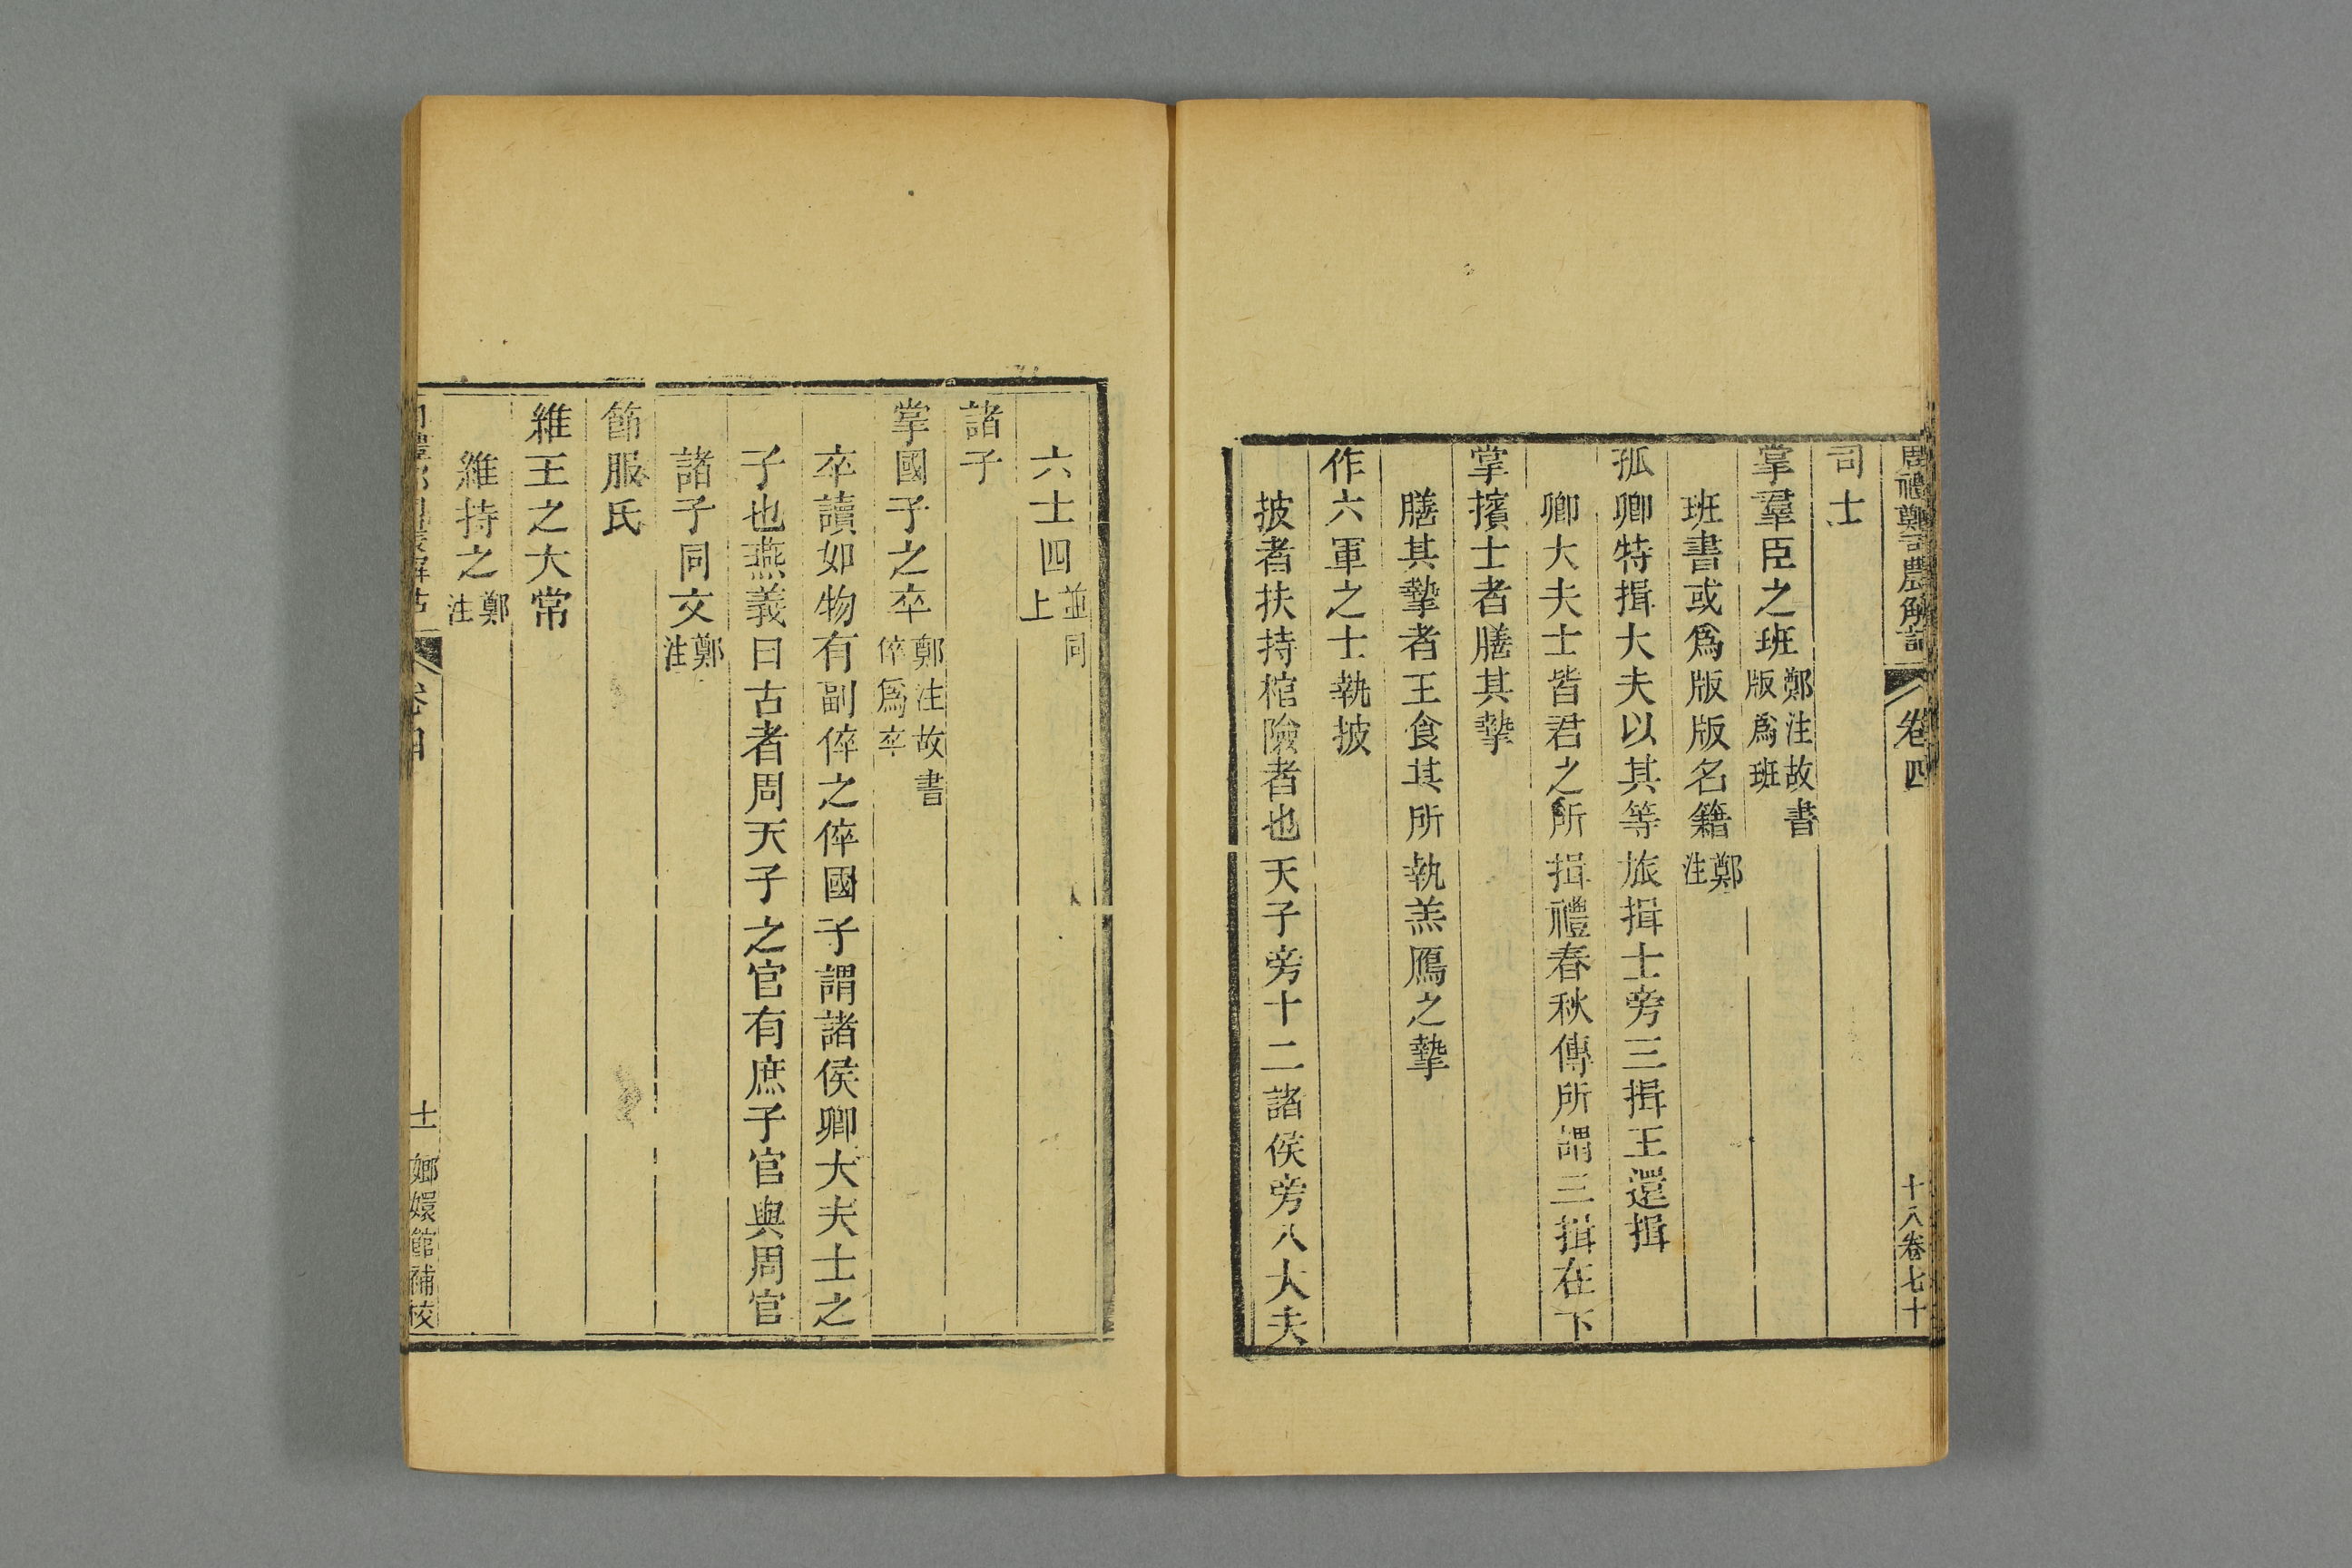 周禮鄭司農解詁 卷四 十八卷七十
司士
掌羣臣之班鄭注故書版爲班
班書或爲版版名籍鄭注
孤卿特揖大夫以其等旅揖士旁三揖王還揖
卿大夫士皆君之所揖禮春秋傳所謂三揖在下
掌擯士者膳其摯
膳其摯者王食其所執羔鴈之摯
作六軍之士執披
披者扶持棺險者也天子旁十二諸侯旁八大夫
六士四並同上
諸子
掌國子之卒鄭注故書倅爲卒
卒讀如物有副倅之倅國子謂諸侯卿大夫士之
子也燕義曰古者周天子之官有庶子官與周官
諸子同文鄭注
節服氏
維王之大常
維持之鄭注
卷四 十一 嫏嬛館補校